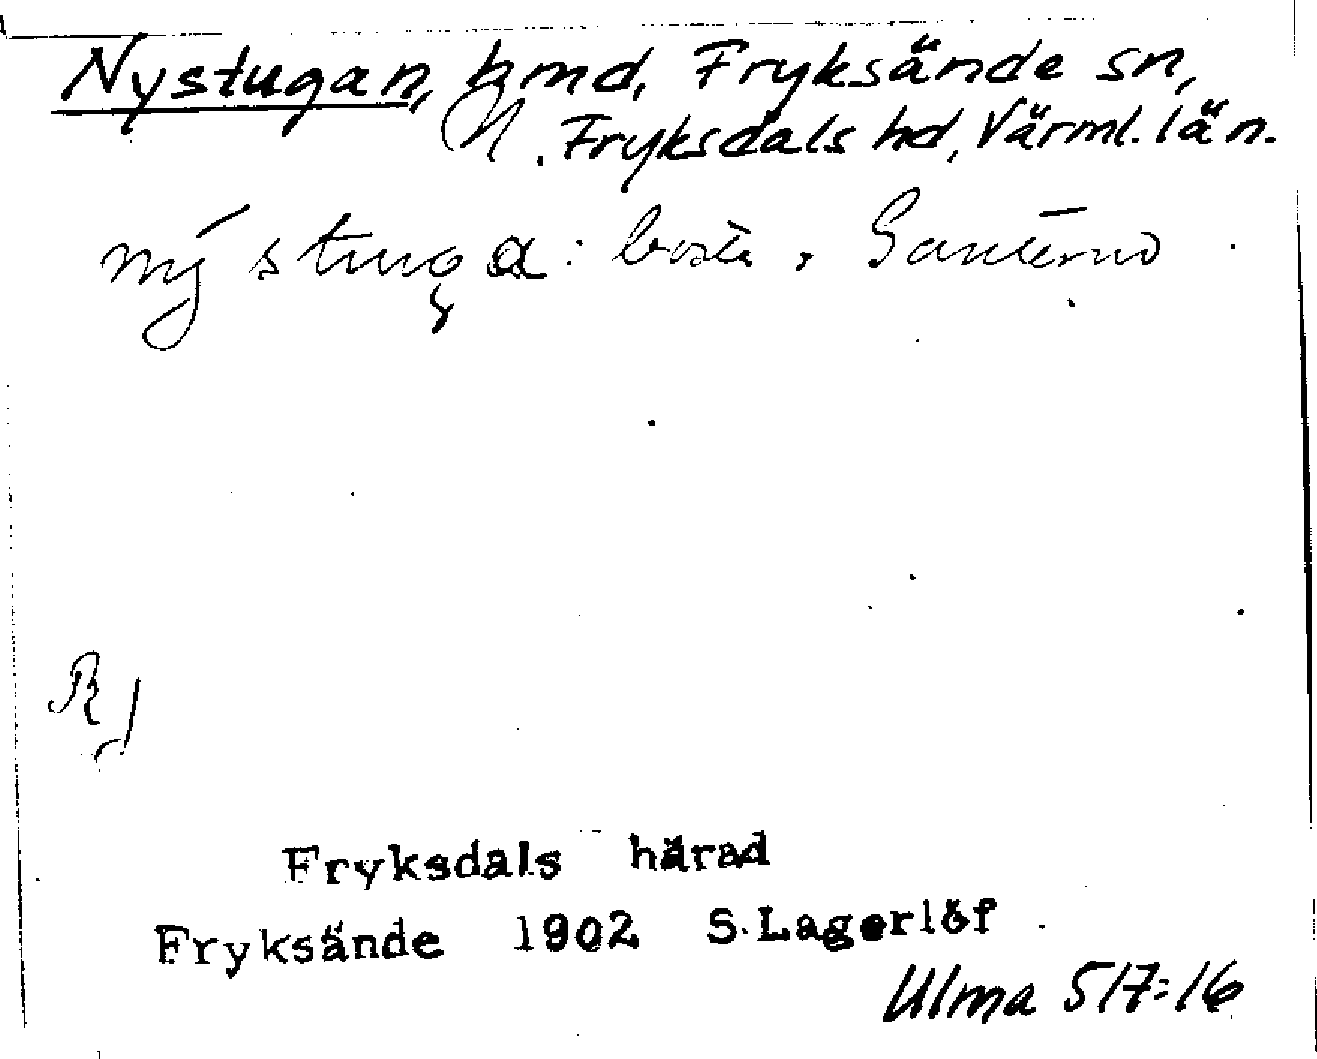 Nystugan, hmd, Fryksände sn,
N. Fryksdals hd, Värml. län.
ný stuga:
R
Fryksdals härad
Fryksände 1902 S. Lagerlöf
Ulma 517:16